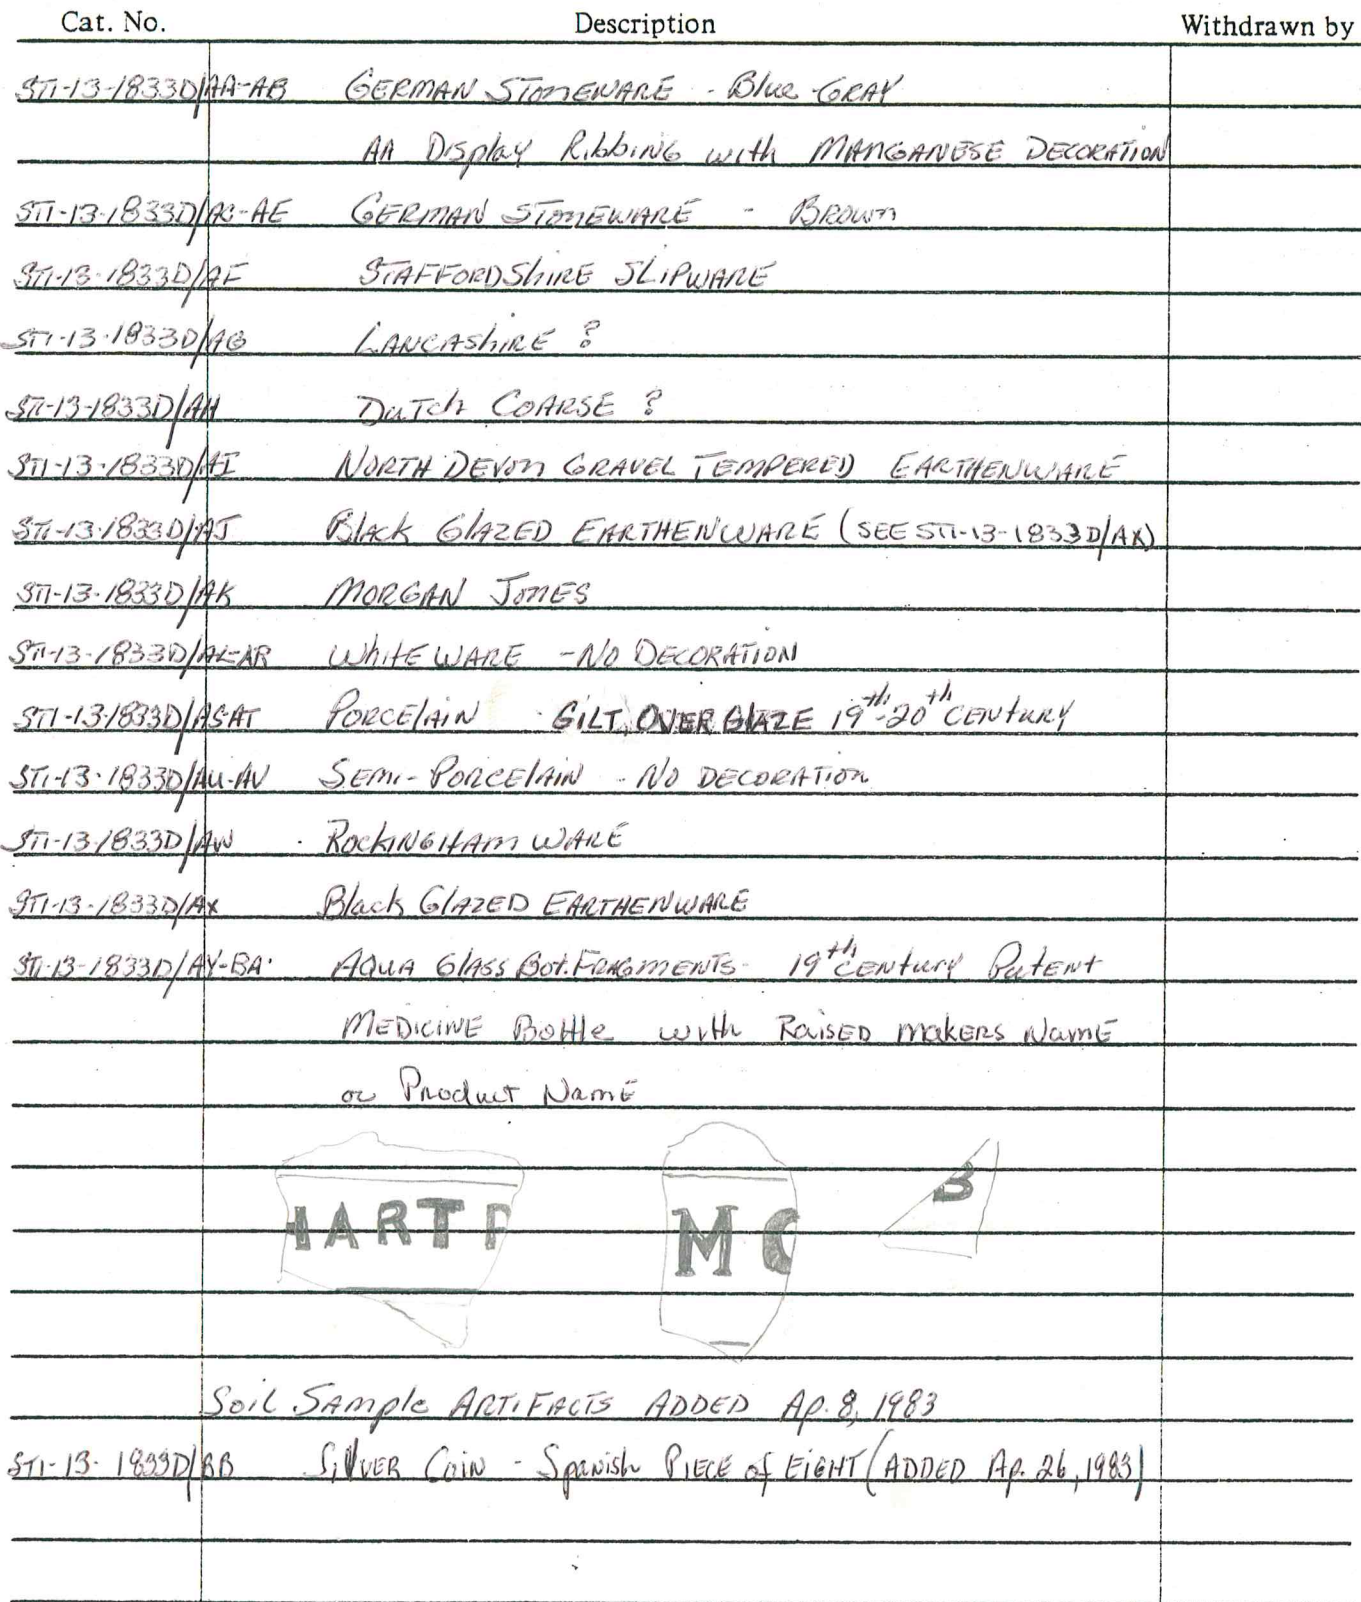 Cat. No. Description Withdrawn by
ST1-13-1833D/AA-AB GERMAN STONEWARE - Blue-GRAY
AA Display Ribbing with MANGANESE DECORATION
ST1-13-1833D/AC-AE GERMAN STONEWARE - BROWN
ST1-13-1833D/AF STAFFORDSHIRE SLIPWARE
ST1-13-1833D/AG LANCASHIRE ?
ST1-13-1833D/AH DUTCH COARSE ?
ST1-13-1833D/AI NORTH DEVON GRAVEL TEMPERED EARTHENWARE
ST1-13-1833D/AJ Black GLAZED EARTHENWARE (SEE ST1-13-1833D/AX)
ST1-13-1833D/AK MORGAN JONES
ST1-13-1833D/AL-AR WHITE WARE - NO DECORATION
ST1-13-1833D/AS-AT PORCELAIN - GILT OVER GLAZE 19th-20th CENTURY
ST1-13-1833D/AU-AV SEMI-PORCELAIN - NO DECORATION
ST1-13-1833D/AW ROCKINGHAM WARE
ST1-13-1833D/AX Black GLAZED EARTHENWARE
ST1-13-1833D/AY-BA AQUA GLASS Bot. FRAGMENTS - 19th CENTURY Patent
MEDICINE Bottle with Raised makers Name
or Product Name
HARTF MC B
Soil SAMPLE ARTIFACTS ADDED Ap. 8, 1983
ST1-13-1833D/BB SILVER COIN - Spanish PIECE of EIGHT (ADDED Ap. 26, 1983)